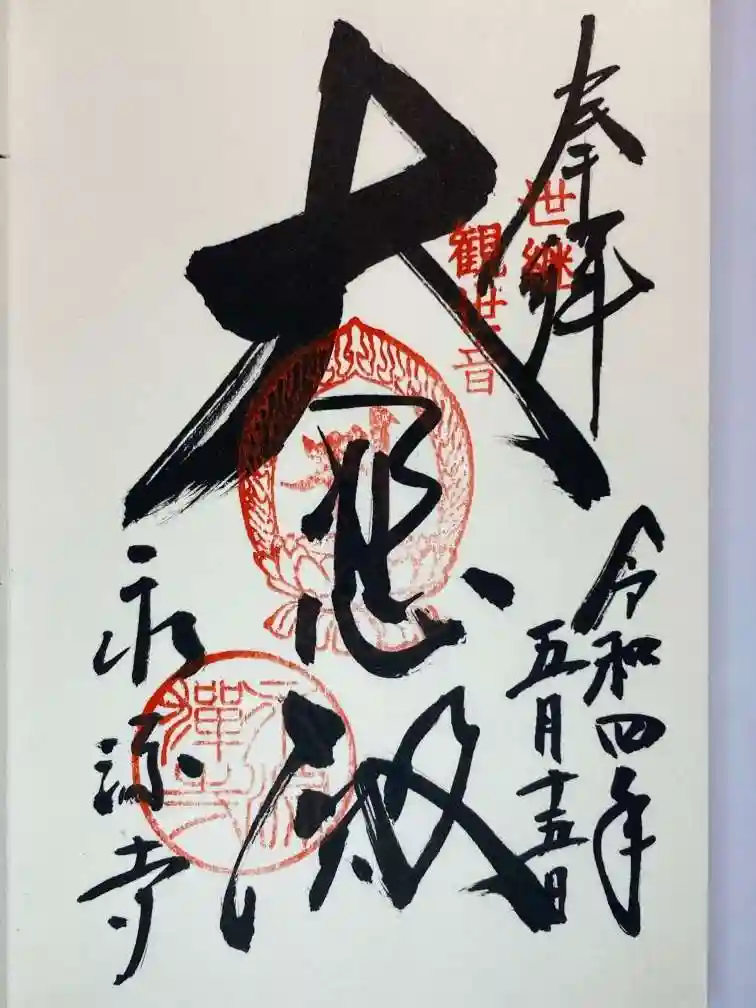 奉拝
世継
観世音
令和四年
五月十五日
大悲殿
永源寺
永源
禪寺